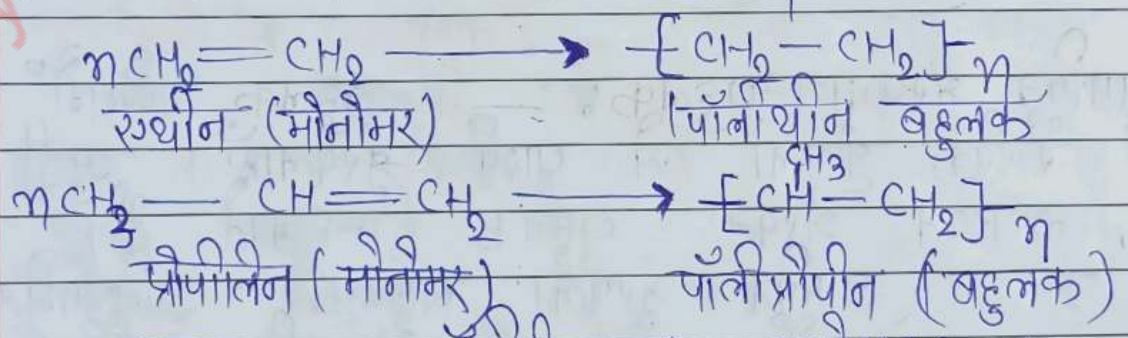 nCH₂=CH₂ ⟶ -[CH₂-CH₂]-n
एथीन (मोनोमर) पॉलीथीन बहुलक
CH₃
nCH₃- CH=CH₂ ⟶ -[CH-CH₂]-n
प्रोपीलिन (मोनोमर) पॉलीप्रोपीन (बहुलक)